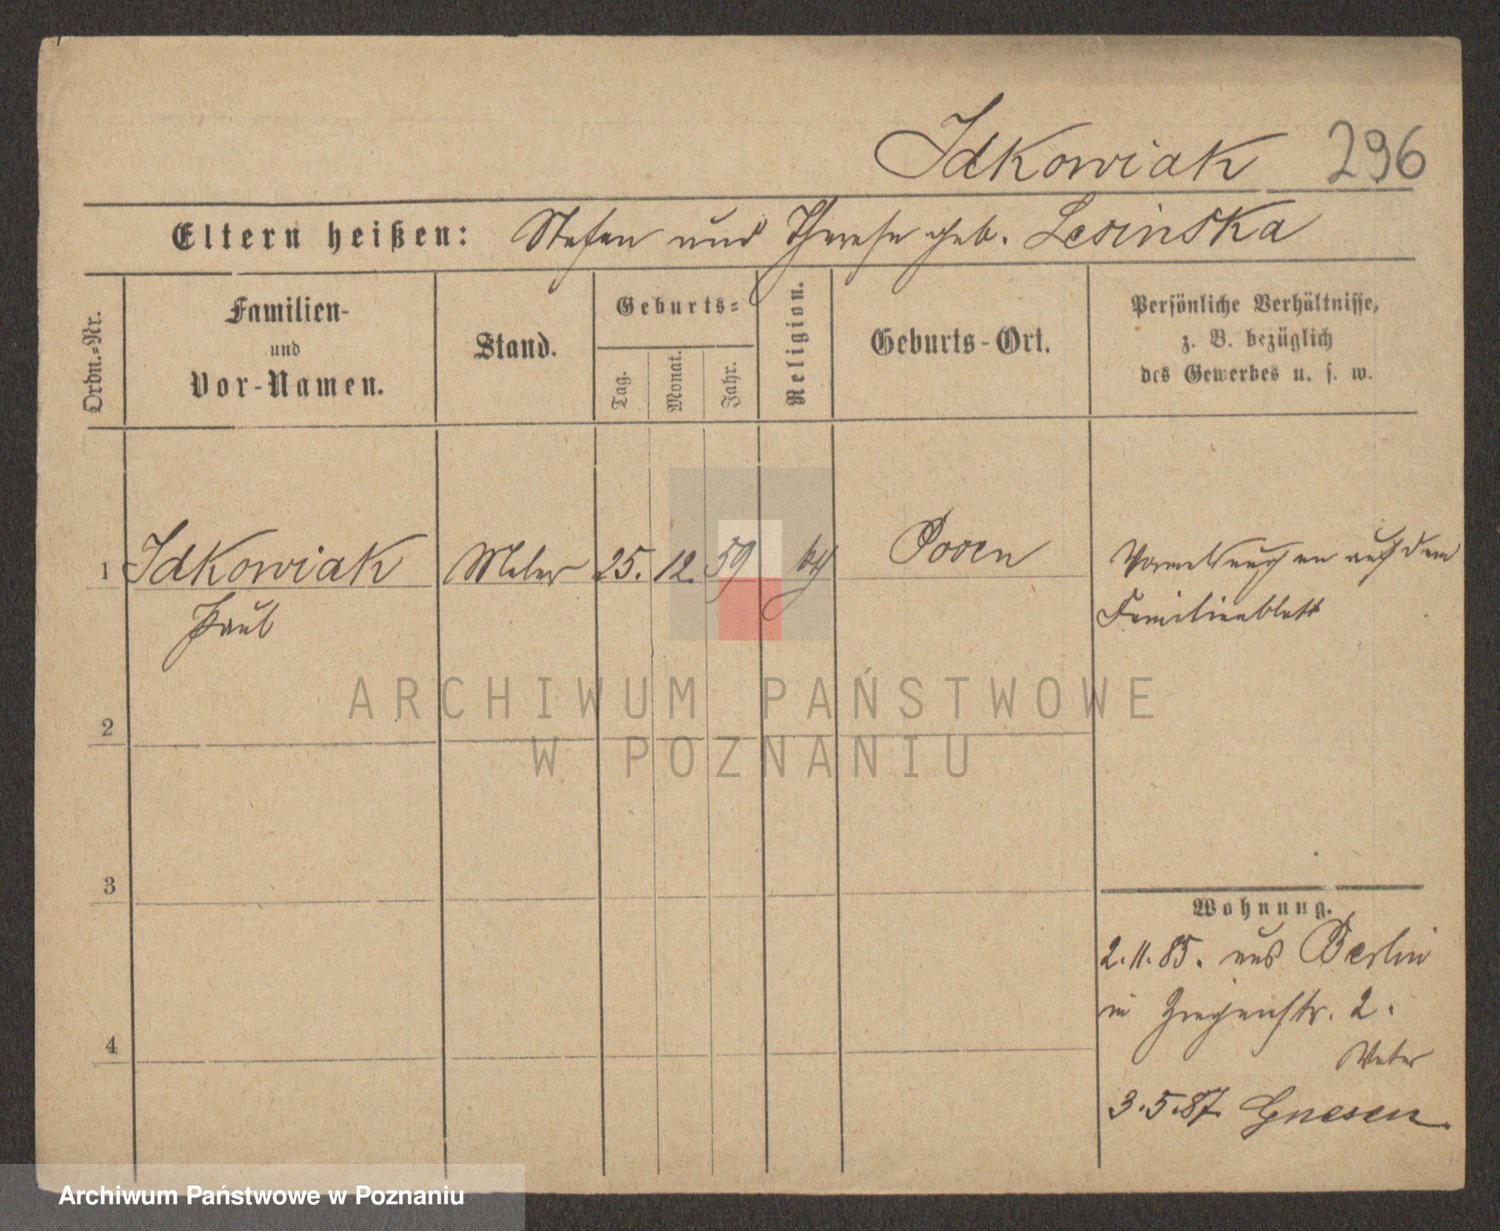 Idkowiak 296
Eltern heißen: Stefan und Therese geb. Lesinska
Ordn.=Nr.
Familien-
und
Vor-Namen.
Stand.
Geburts=
Tag.
Monat.
Jahr.
Religion.
Geburts-Ort.
Persönliche Verhältnisse,
z. B. bezüglich
des Gewerbes u. s. w.
1 Idkowiak Maler 25. 12. 59 Posen
Paul
Vormerkungen auf dem
Familienblatt
2
3
4
Wohnung.
2.11.85. aus Berlin
in 2.
Vater
3.5.87 Gnesen.
ARCHIWUM PAŃSTWOWE
W POZNANIU
Archiwum Państwowe w Poznaniu